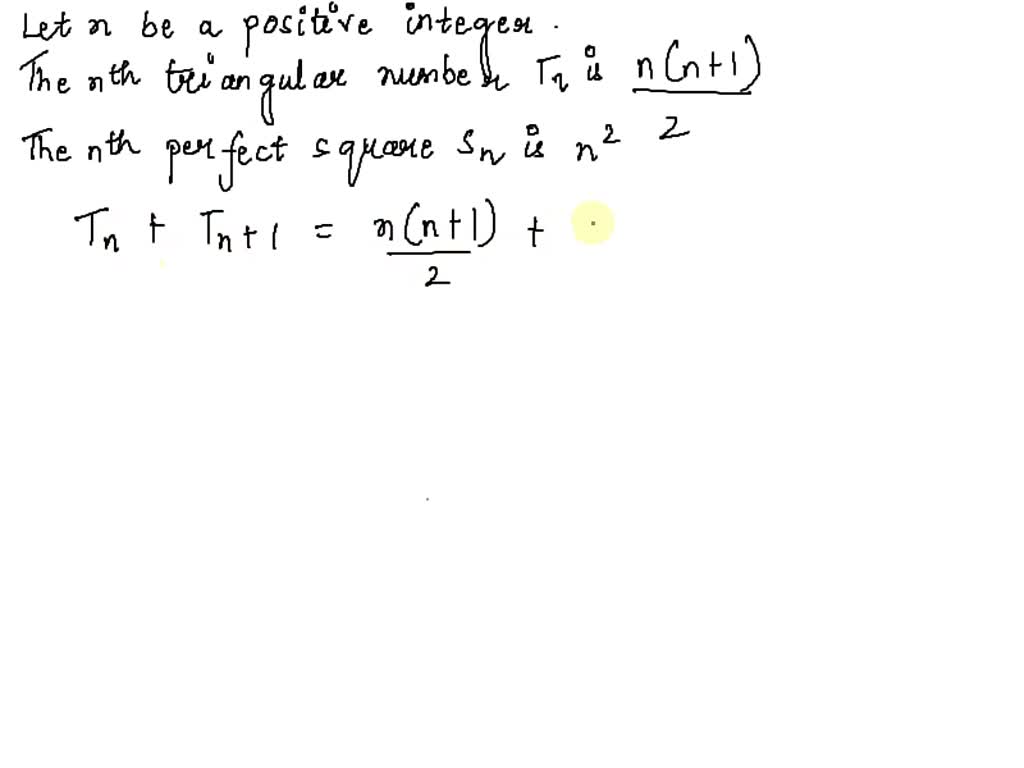 Let n be a positive integer.
The nth triangular number Tn is n(n+1)/2
The nth perfect square Sn is n²
Tn + Tn+1 = n(n+1)/2 +